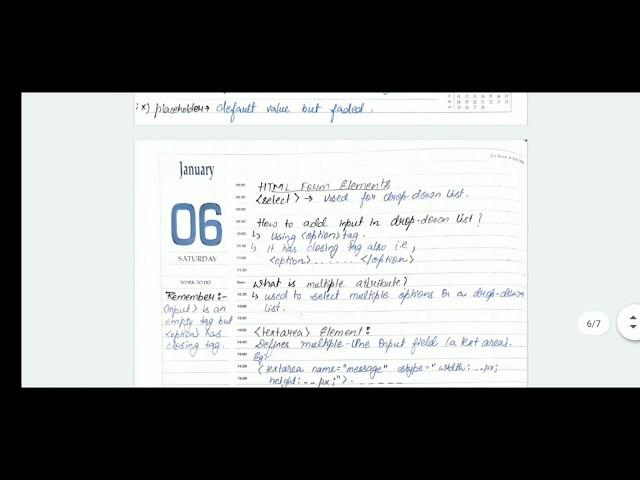 ix) placeholder → default value but faded.
January
06
SATURDAY
WORK TO DO
Remember:-
<input> is an
empty tag but
<option> has
closing tag.
HTML Form Elements
<select> → used for drop-down list.
How to add input in drop-down list?
↳ Using <option> tag.
↳ It has closing tag also i.e,
<option> ...... </option>
What is multiple attribute?
↳ used to select multiple options in a drop-down
list.
<textarea> Element:
Defines multiple-line input field (a text area).
Eg:
<textarea name="message" style="width: --px;
height: --px;">. ------
6/7